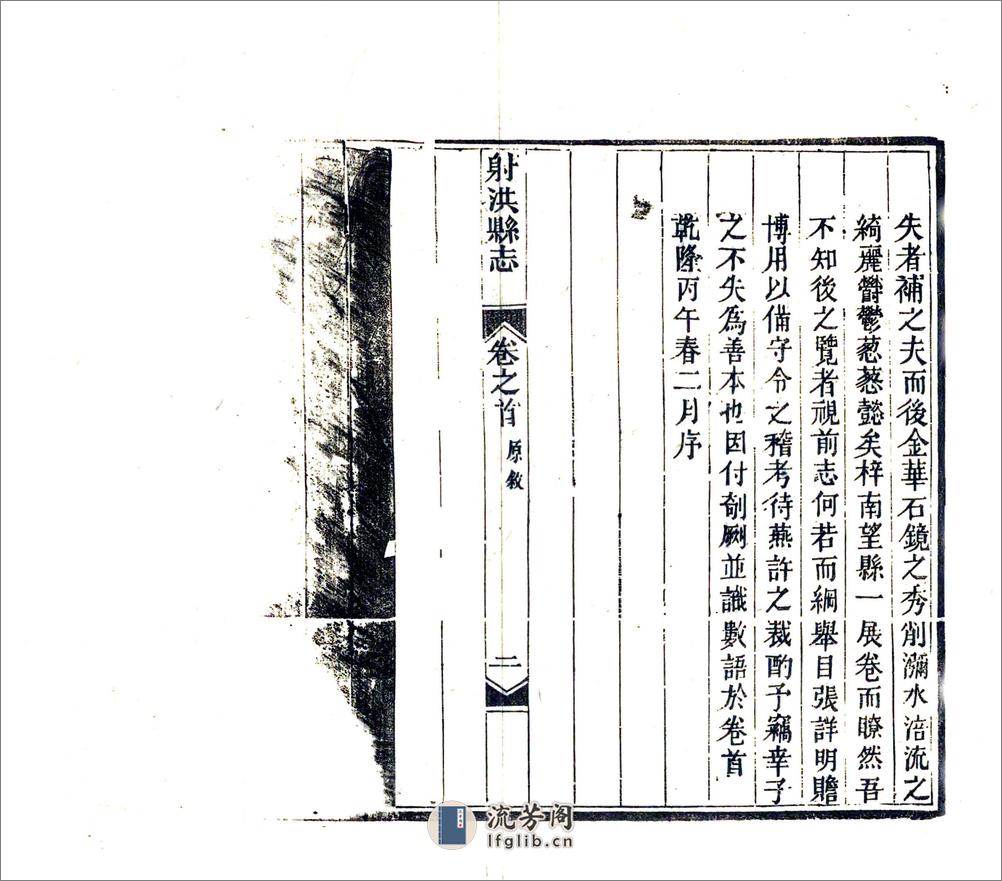 失者補之夫而後金華石鏡之秀削瀰水涪流之
綺麗欝鬱葱葱懿矣梓南望縣一展卷而瞭然吾
不知後之覽者視前志何若而綱舉目張詳明贍
博用以備守令之稽考待燕許之裁酌予竊幸予
之不失為善本也因付剞劂並識數語於卷首
乾隆丙午春二月序
射洪縣志
卷之首
原敘
二
流芳阁
lfglib.cn